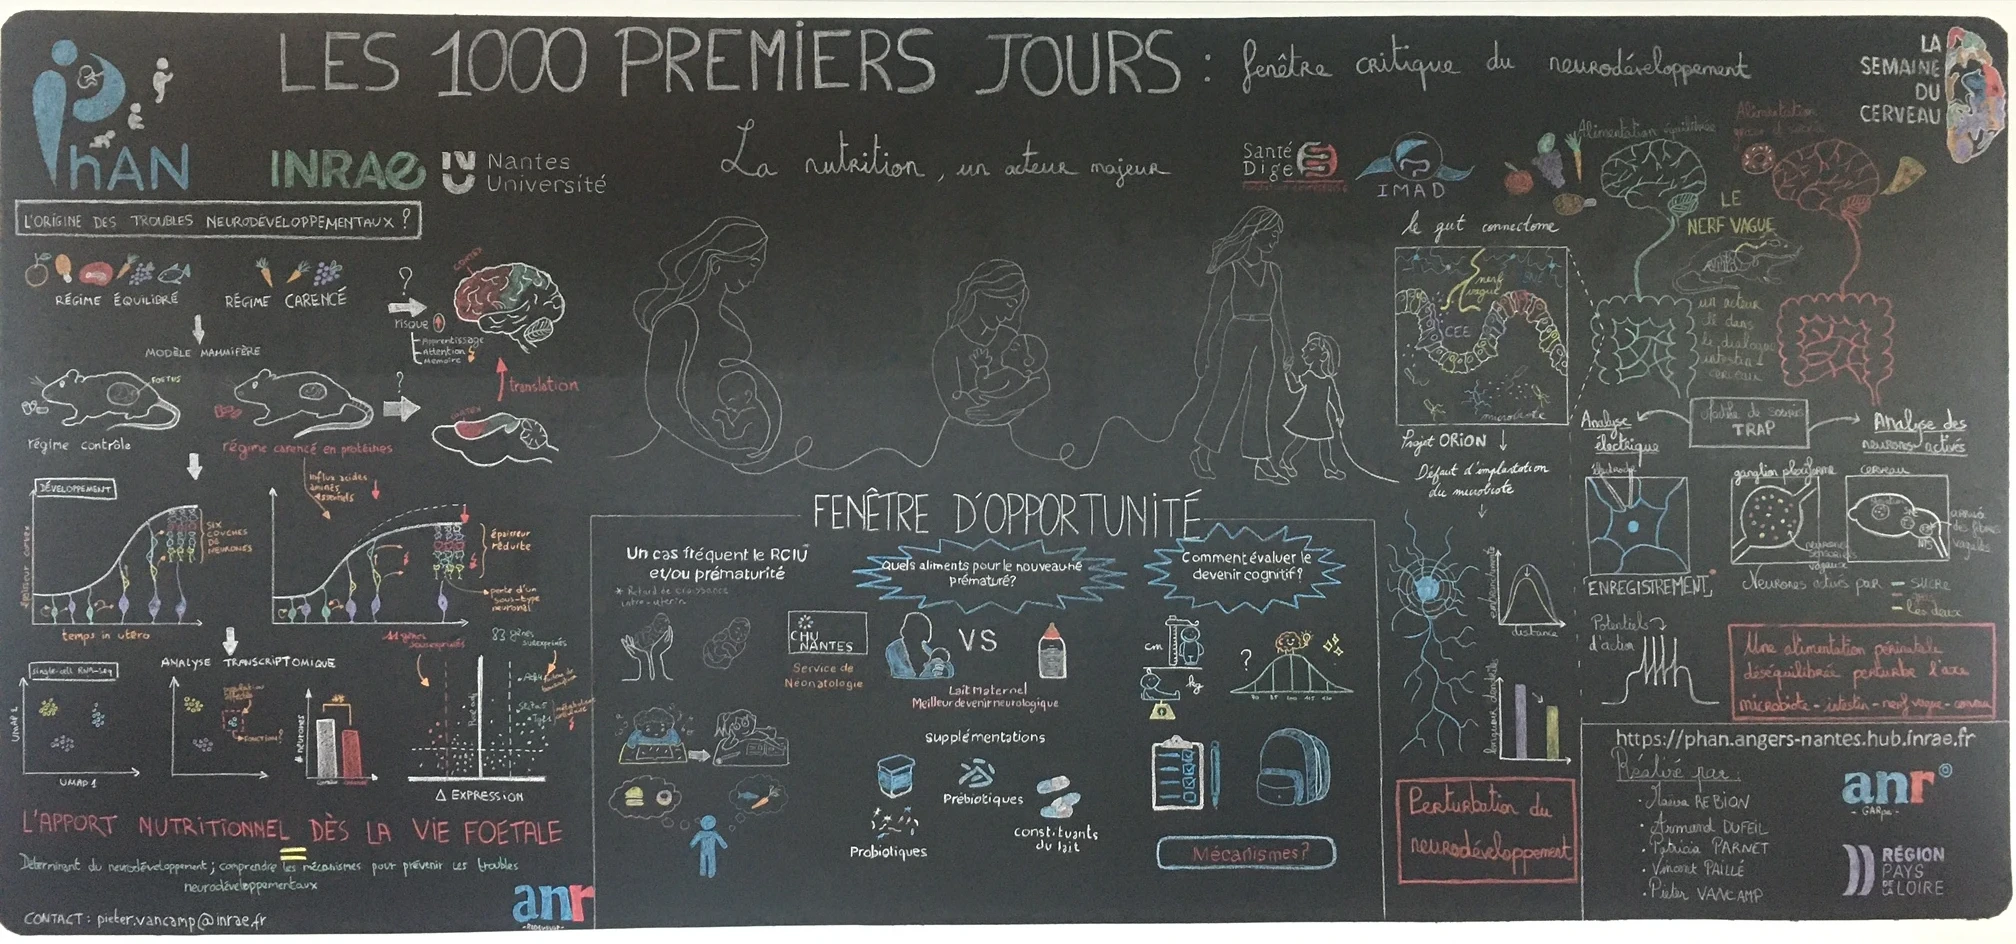 LES 1000 PREMIERS JOURS : fenêtre critique du neurodéveloppement
La nutrition, un acteur majeur
PhAN
INRAE
Nantes
Université
Santé
Dige
IMAD
LA
SEMAINE
DU
CERVEAU
L'ORIGINE DES TROUBLES NEURODÉVELOPPEMENTAUX ?
RÉGIME ÉQUILIBRÉ
RÉGIME CARENCÉ
?
risque
Apprentissage
Attention
Mémoire
CORTEX
MODÈLE MAMMIFÈRE
FOETUS
?
translation
CORTEX
régime contrôle
régime carencé en protéines
DÉVELOPPEMENT
épaisseur cortex
temps in utéro
SIX
COUCHES
DE
NEURONES
influx acides
aminés
essentiels
épaisseur
réduite
perte d'un
sous-type
neuronal
44 gènes
surexprimés
83 gènes
sousexprimés
ANALYSE TRANSCRIPTOMIQUE
single-cell RNA-seq
UMAP 2
UMAP 1
FONCTION?
# neurones
Δ EXPRESSION
L'APPORT NUTRITIONNEL DÈS LA VIE FOETALE
=
Déterminant du neurodéveloppement; comprendre les mécanismes pour prévenir les troubles
neurodéveloppementaux
CONTACT : pieter.vancamp@inrae.fr
anr
FENÊTRE D'OPPORTUNITÉ
Un cas fréquent le RCIU*
et/ou prématurité
* Retard de croissance
intra-utérin
Quels aliments pour le nouveau né
prématuré?
Comment évaluer le
devenir cognitif?
CHU
NANTES
Service de
Néonatologie
VS
Lait Maternel
Meilleur devenir neurologique
supplémentations
Prébiotiques
Probiotiques
constituants
du lait
cm
kg
?
Mécanismes?
le gut connectome
nerf
vague
CEE
microbiote
Projet ORION
Défaut d'implantation
du microbiote
distance
Perturbation du
neurodéveloppement
Alimentation équilibrée
Alimentation
LE
NERF VAGUE
un acteur
clé dans
le dialogue
intestin-
cerveau
Modèle de souris
TRAP
Analyse
électrique
Analyse des
neurones activés
électrode
"ENREGISTREMENT"
Potentiels
d'action
ganglion plexiforme
neurones
sensoriels
vagaux
cerveau
NTS
arrivée
des fibres
vagales
Neurones activés par
SUCRE
gras
les deux
Une alimentation périnatale
déséquilibrée perturbe l'axe
microbiote-intestin-nerf vague-cerveau
https://phan.angers-nantes.hub.inrae.fr
Réalisé par :
REBION
• Armand DUFEIL
• Patricia PARNET
• Vincent PAILLÉ
• Pieter VANCAMP
anr
RÉGION
PAYS
DE
LA LOIRE